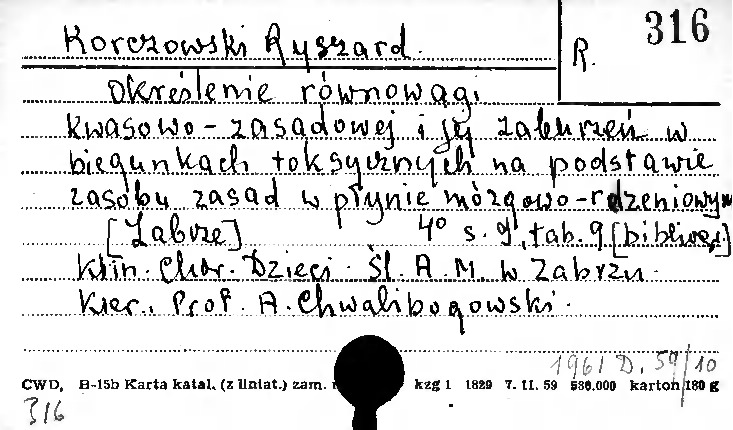 Korczowski Ryszard.
R. 316
Określenie równowagi
kwasowo-zasadowej i jej zaburzeń w
biegunkach toksycznych na podstawie
zasobu zasad w płynie mózgowo-rdzeniowym
[Zabrze] 4° s. 9, tab. 9 [bibliogr.]
Klin. Chor. Dzieci. Śl. A. M. w Zabrzu.
Kier. Prof. A. Chwalibogowski.
1961 D. 59/10
CWD, B-15b Karta katal. (z liniat.) zam. kzg 1 1829 7. II. 59 580.000 karton 180 g
316